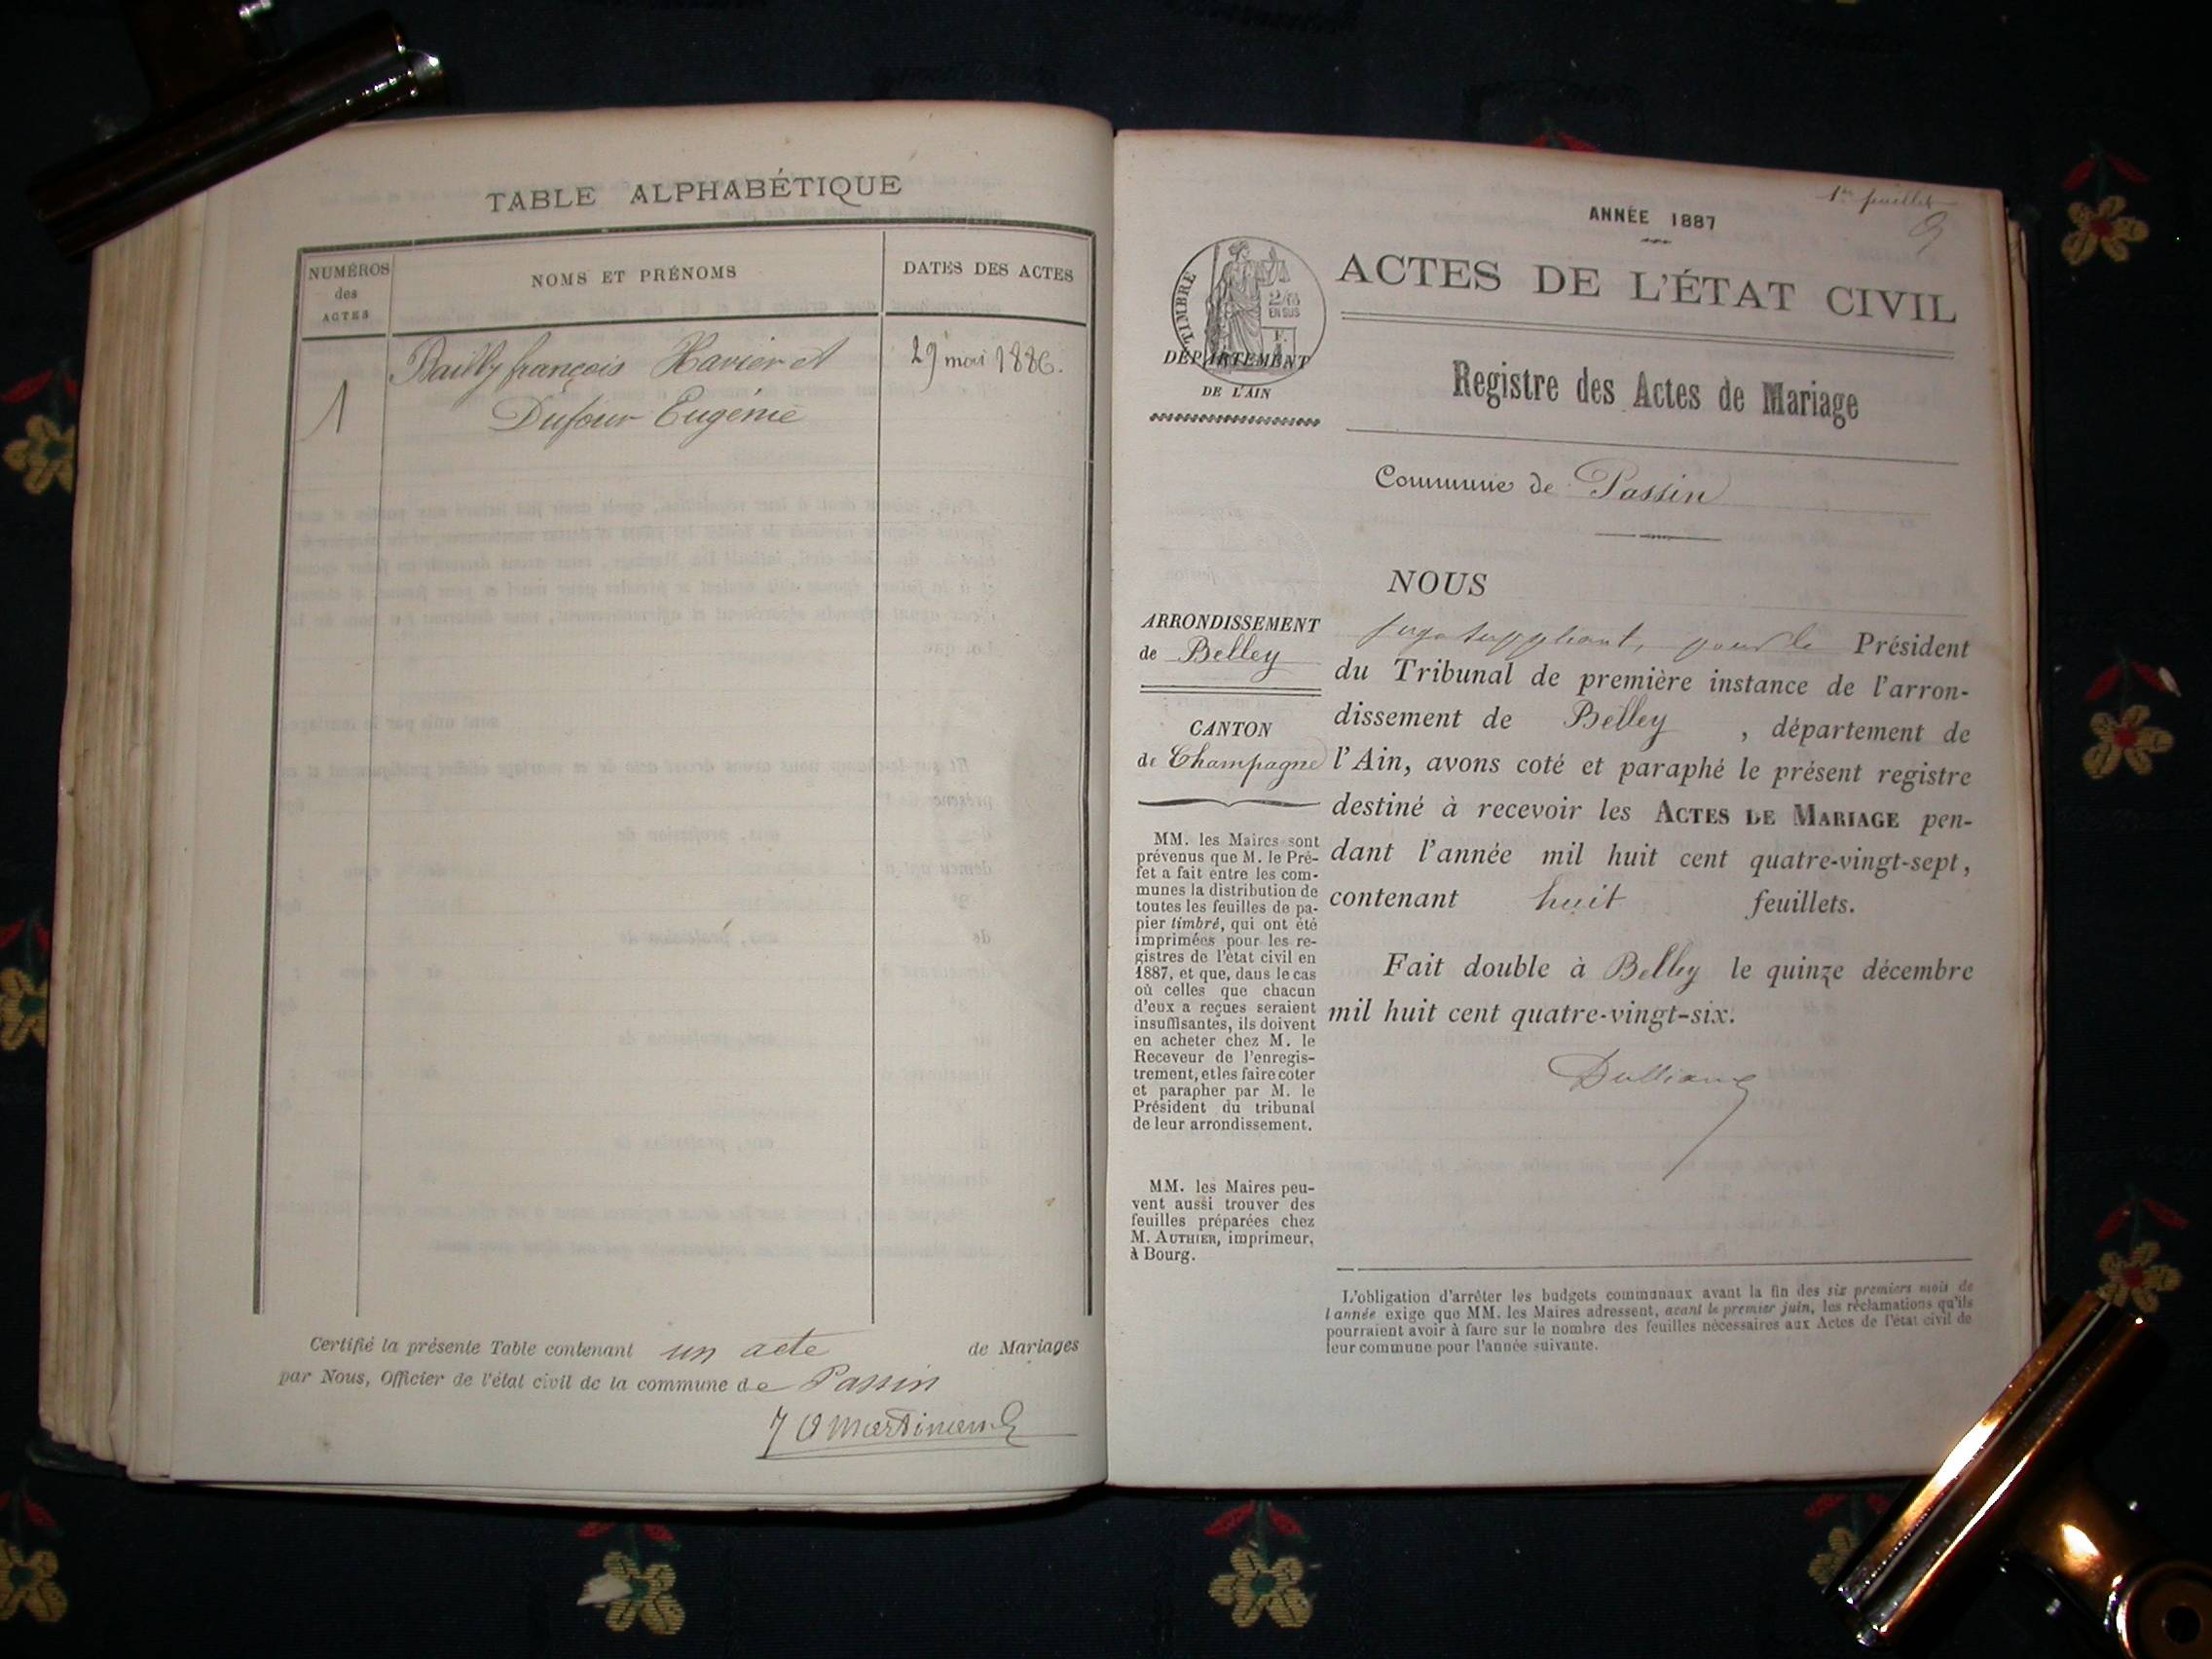 TABLE ALPHABÉTIQUE
NUMÉROS
des
ACTES
NOMS ET PRÉNOMS
DATES DES ACTES
1
Bailly françois Xavier et
Dufour Eugénie
29 mai 1886.
Certifié la présente Table contenant un acte de Mariages
par Nous, Officier de l'état civil de la commune de Passin
1er feuillet
ANNÉE 1887
ACTES DE L'ÉTAT CIVIL
TIMBRE
2/10
EN SUS
DÉPARTEMENT
DE L'AIN
Registre des Actes de Mariage
Commune de Passin
ARRONDISSEMENT
de Belley
CANTON
de Champagne
MM. les Maires sont
prévenus que M. le Pré-
fet a fait entre les com-
munes la distribution de
toutes les feuilles de pa-
pier timbré, qui ont été
imprimées pour les re-
gistres de l'état civil en
1887, et que, dans le cas
où celles que chacun
d'eux a reçues seraient
insuffisantes, ils doivent
en acheter chez M. le
Receveur de l'enregis-
trement, et les faire coter
et parapher par M. le
Président du tribunal
de leur arrondissement.
MM. les Maires peu-
vent aussi trouver des
feuilles préparées chez
M. AUTHIER, imprimeur,
à Bourg.
NOUS
juge suppléant, pour le Président
du Tribunal de première instance de l'arron-
dissement de Belley , département de
l'Ain, avons coté et paraphé le présent registre
destiné à recevoir les ACTES DE MARIAGE pen-
dant l'année mil huit cent quatre-vingt-sept,
contenant huit feuillets.
Fait double à Belley le quinze décembre
mil huit cent quatre-vingt-six.
L'obligation d'arrêter les budgets communaux avant la fin des six premiers mois de
l'année exige que MM. les Maires adressent, avant le premier juin, les réclamations qu'ils
pourraient avoir à faire sur le nombre des feuilles nécessaires aux Actes de l'état civil de
leur commune pour l'année suivante.